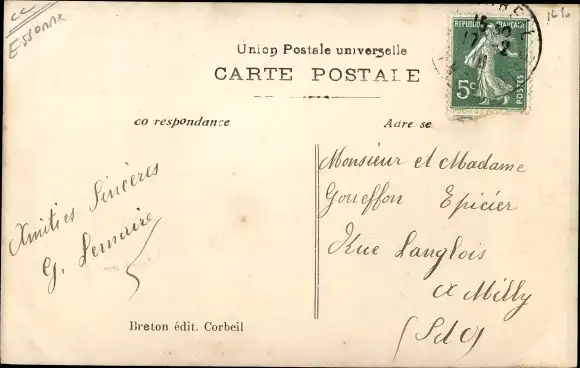 cc
Essonne
Union Postale universelle
CARTE POSTALE
co respondance
Adresse
REPUBLIQUE FRANÇAISE
5c
POSTES
Amitiés Sincères
G. Lemaire
Monsieur et Madame
Goueffon Epicier
Rue Langlois
a Milly
(S&O)
Breton édit. Corbeil